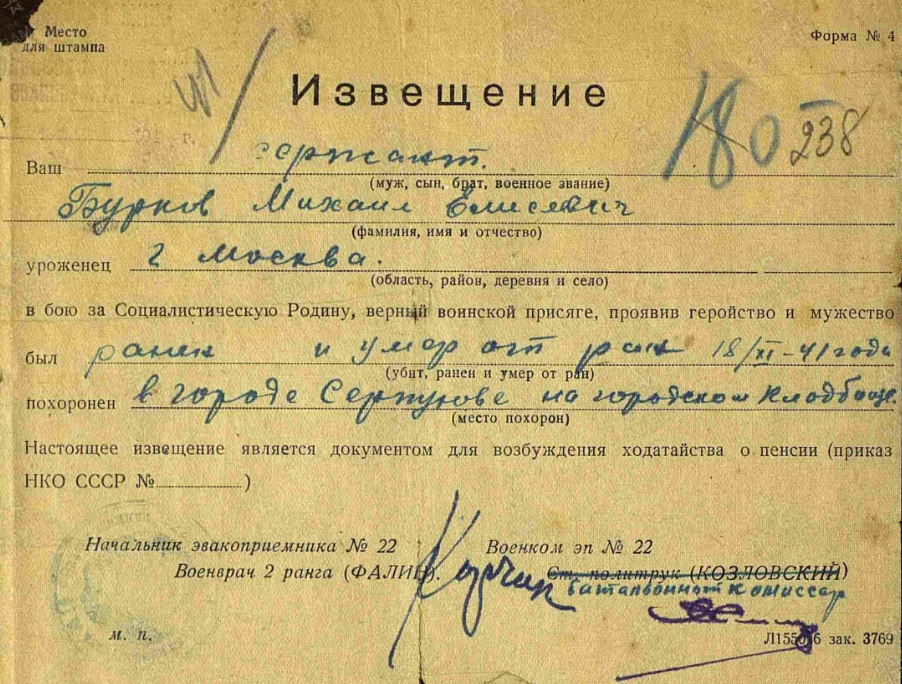 Место
для штампа
Форма № 4
Извещение
180 238
Ваш сержант.
(муж, сын, брат, военное звание)
Бурков Михаил Елисеевич
(фамилия, имя и отчество)
уроженец г Москва.
(область, район, деревня и село)
в бою за Социалистическую Родину, верный воинской присяге, проявив геройство и мужество
был ранен и умер от ран 18/XI-41 года
(убит, ранен и умер от ран)
похоронен в городе Серпухове на городском Кладбище.
(место похорон)
Настоящее извещение является документом для возбуждения ходатайства о пенсии (приказ
НКО СССР № )
Начальник эвакоприемника № 22
Военврач 2 ранга (ФАЛИН).
Военком эп № 22
Ст. политрук (КОЗЛОВСКИЙ)
батальонный комиссар
м. п.
зак. 3769